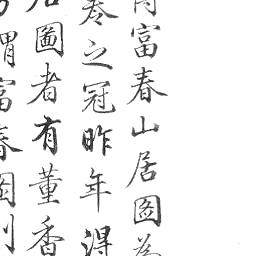 富春山居図為
卷之冠昨年得
圖者有董香
謂富春圖